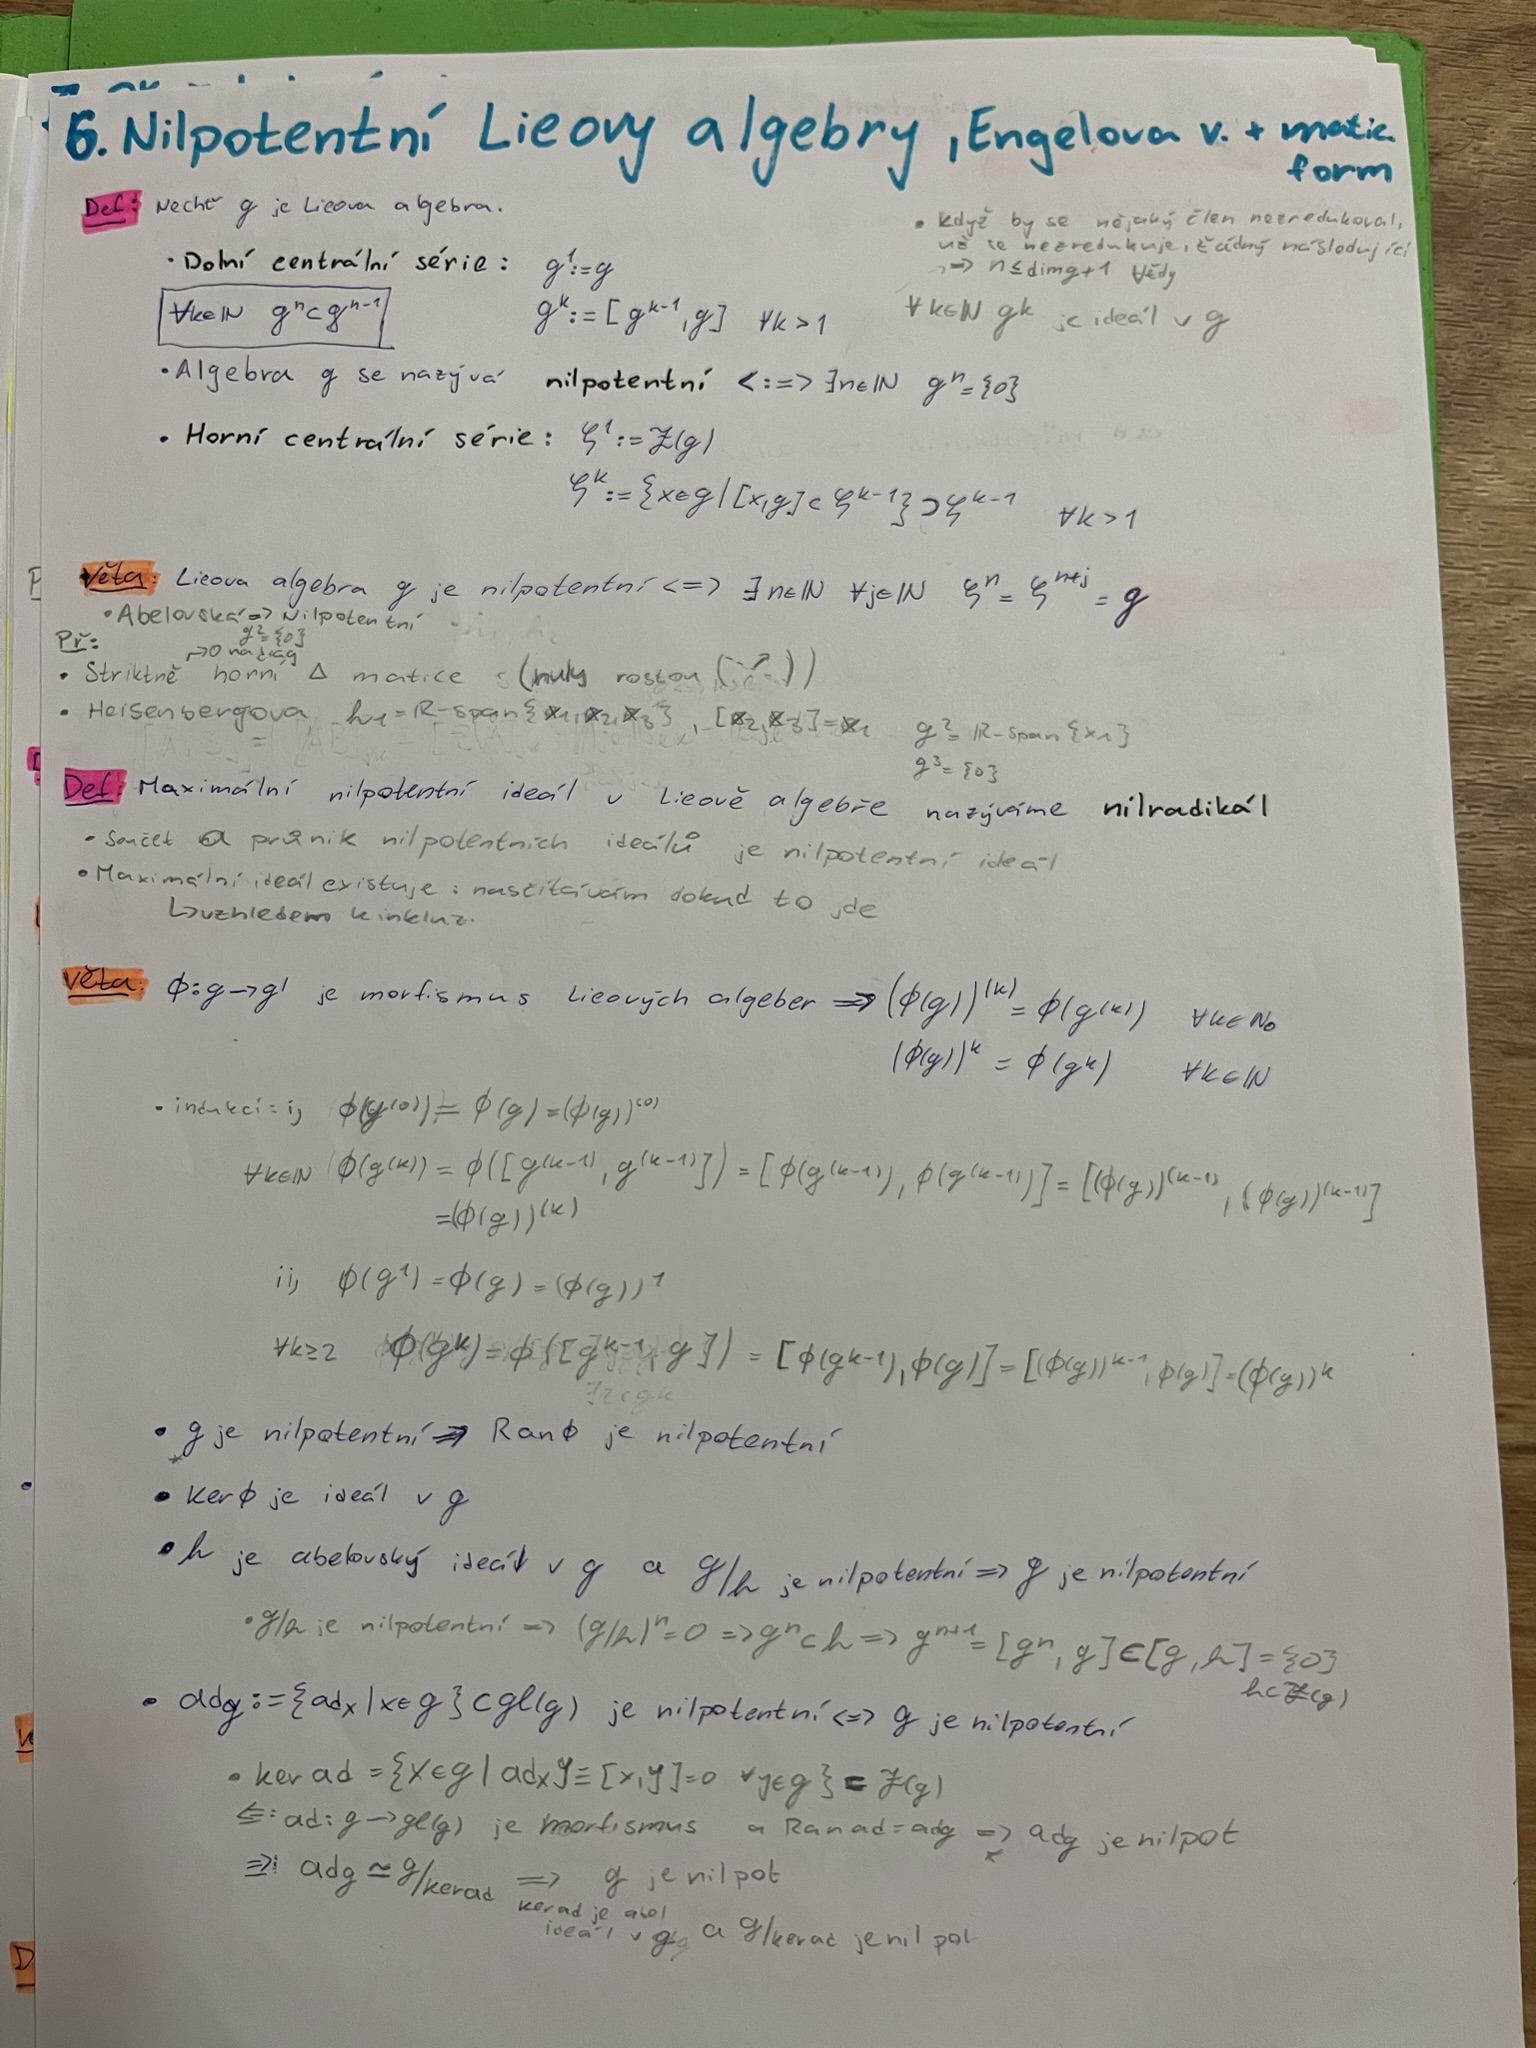 6. Nilpotentní Lieovy algebry, Engelova v. + matic. form
Def: Nechť g je Lieova algebra.
• Když by se nějaký člen nezredukoval,
už se nezredukuje, žádný následující
=> n ≤ dim g + 1 vždy
∀k∈ℕ g^k je ideál v g
• Dolní centrální série: g^1 := g
∀k∈ℕ g^n ⊂ g^{n-1}
g^k := [g^{k-1}, g] ∀k > 1
• Algebra g se nazývá nilpotentní <:=> ∃n∈ℕ g^n = {0}
• Horní centrální série: ζ^1 := Z(g)
ζ^k := {x∈g | [x,g] ⊂ ζ^{k-1}} ⊃ ζ^{k-1} ∀k > 1
Věta: Lieova algebra g je nilpotentní <=> ∃n∈ℕ ∀j∈ℕ ζ^n = ζ^{n+j} = g
• Abelovská => Nilpotentní
g^2 = {0}
Př:
↦ 0 na diag
• Striktně horní Δ matice (nuly rostou (↗))
• Heisenbergova h_1 = ℝ-span{x_1, x_2, x_3}, [x_2, x_3] = x_1
g^2 = ℝ-span{x_1}
g^3 = {0}
Def: Maximální nilpotentní ideál v Lieově algebře nazýváme nilradikál
• Součet a průnik nilpotentních ideálů je nilpotentní ideál
• Maximální ideál existuje: nasčítávám dokud to jde
↳ vzhledem k inkluz.
Věta: ϕ: g → g' je morfismus Lieových algeber => (ϕ(g))^{(k)} = ϕ(g^{(k)}) ∀k∈ℕ_0
(ϕ(g))^k = ϕ(g^k) ∀k∈ℕ
• indukcí: i, ϕ(g^{(0)}) = ϕ(g) = (ϕ(g))^{(0)}
∀k∈ℕ ϕ(g^{(k)}) = ϕ([g^{(k-1)}, g^{(k-1)}]) = [ϕ(g^{(k-1)}), ϕ(g^{(k-1)})] = [(ϕ(g))^{(k-1)}, (ϕ(g))^{(k-1)}]
= (ϕ(g))^{(k)}
ii, ϕ(g^1) = ϕ(g) = (ϕ(g))^1
∀k≥2 ϕ(g^k) = ϕ([g^{k-1}, g]) = [ϕ(g^{k-1}), ϕ(g)] = [(ϕ(g))^{k-1}, ϕ(g)] = (ϕ(g))^k
• g je nilpotentní => Ran ϕ je nilpotentní
*
• Ker ϕ je ideál v g
• h je abelovský ideál v g a g/h je nilpotentní => g je nilpotentní
• g/h je nilpotentní => (g/h)^n = 0 => g^n ⊂ h => g^{n+1} = [g^n, g] ⊂ [g, h] = {0}
h ⊂ Z(g)
• ad_g := {ad_x | x∈g} ⊂ gl(g) je nilpotentní <=> g je nilpotentní
• ker ad = {x∈g | ad_x y ≡ [x,y] = 0 ∀y∈g} = Z(g)
⇐: ad: g → gl(g) je morfismus a Ran ad = ad_g => ad_g je nilpot
*
⇒: ad_g ≃ g/ker ad => g je nilpot
ker ad je abel
ideál v g a g/ker ad je nilpot